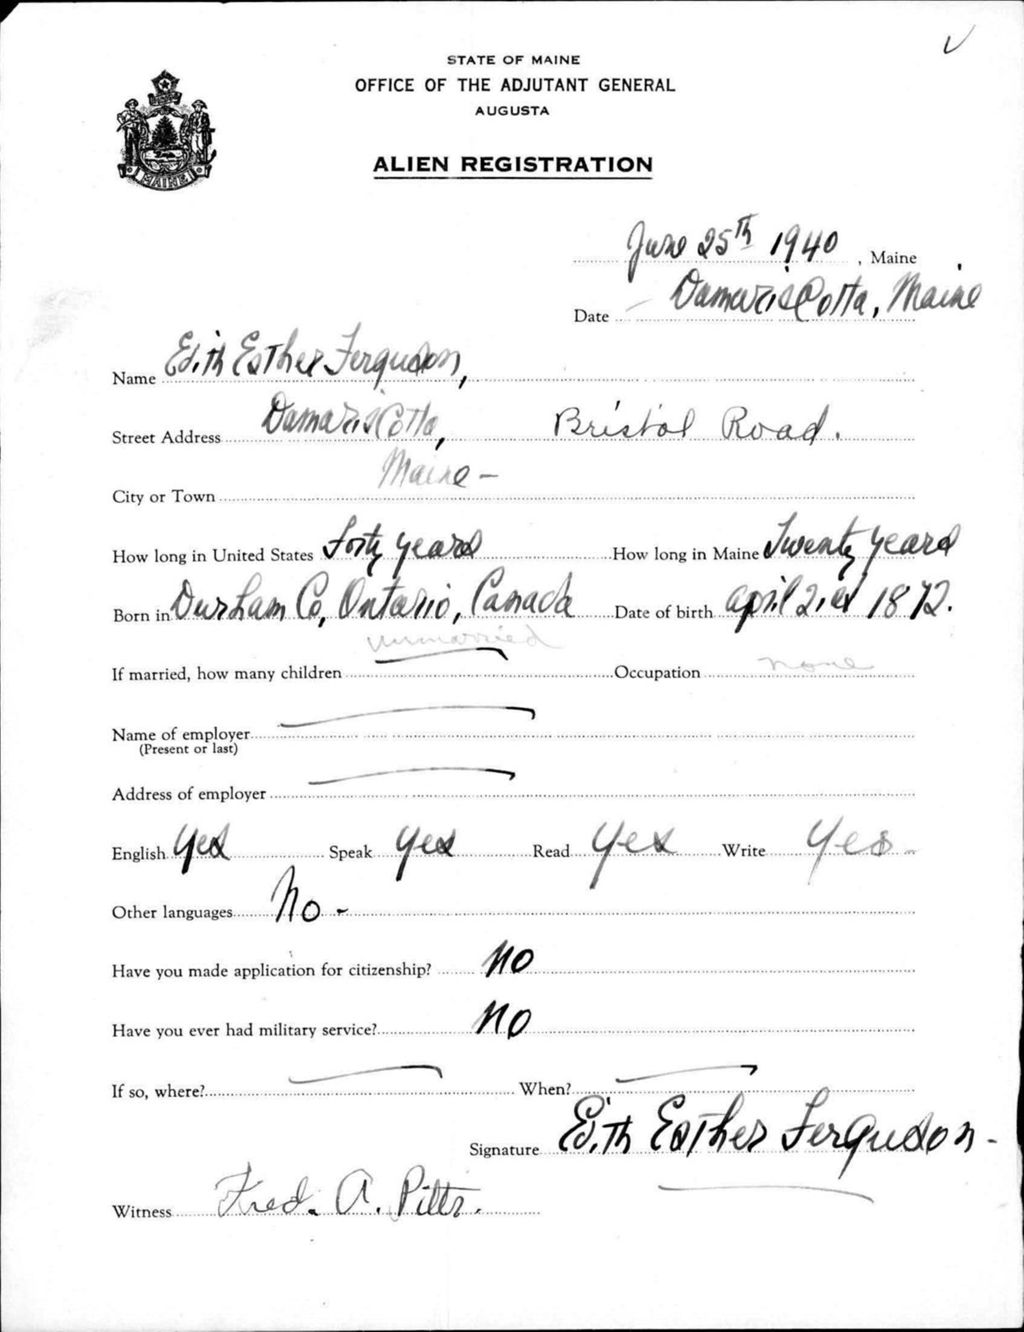 STATE OF MAINE
OFFICE OF THE ADJUTANT GENERAL
AUGUSTA
ALIEN REGISTRATION
MAINE
June 25th 1940, Maine
Date Damariscotta, Maine
Name Edith Esther Ferguson,
Street Address Damariscotta, Bristol Road.
Maine -
City or Town
How long in United States Forty years How long in Maine Twenty years
Born in Durham Co, Ontario, Canada Date of birth April 2, 1872.
unmarried
If married, how many children Occupation none
Name of employer
(Present or last)
Address of employer
English Yes Speak Yes Read Yes Write Yes
Other languages No -
Have you made application for citizenship? No
Have you ever had military service? No
If so, where? When?
Signature Edith Esther Ferguson -
Witness Fred. A. Pitts.